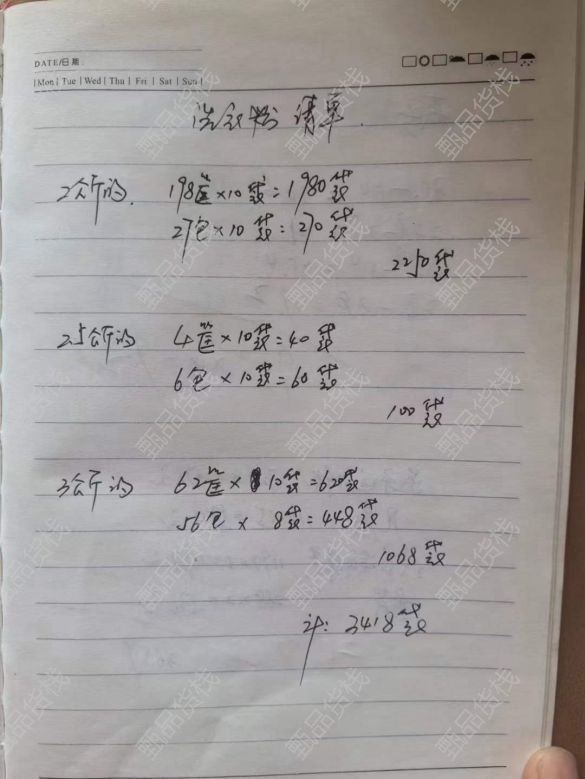 DATE/日期:
Mon | Tue | Wed | Thu | Fri | Sat | Sun
洗衣粉 清单.
2公斤的. 198筐×10袋=1980袋
27包×10袋=270袋
2250袋
25公斤的 4筐×10袋=40袋
6包×10袋=60袋
100袋
3公斤的 62筐×10袋=620袋
56包×8袋=448袋
1068袋
计: 3418袋
甄品货栈